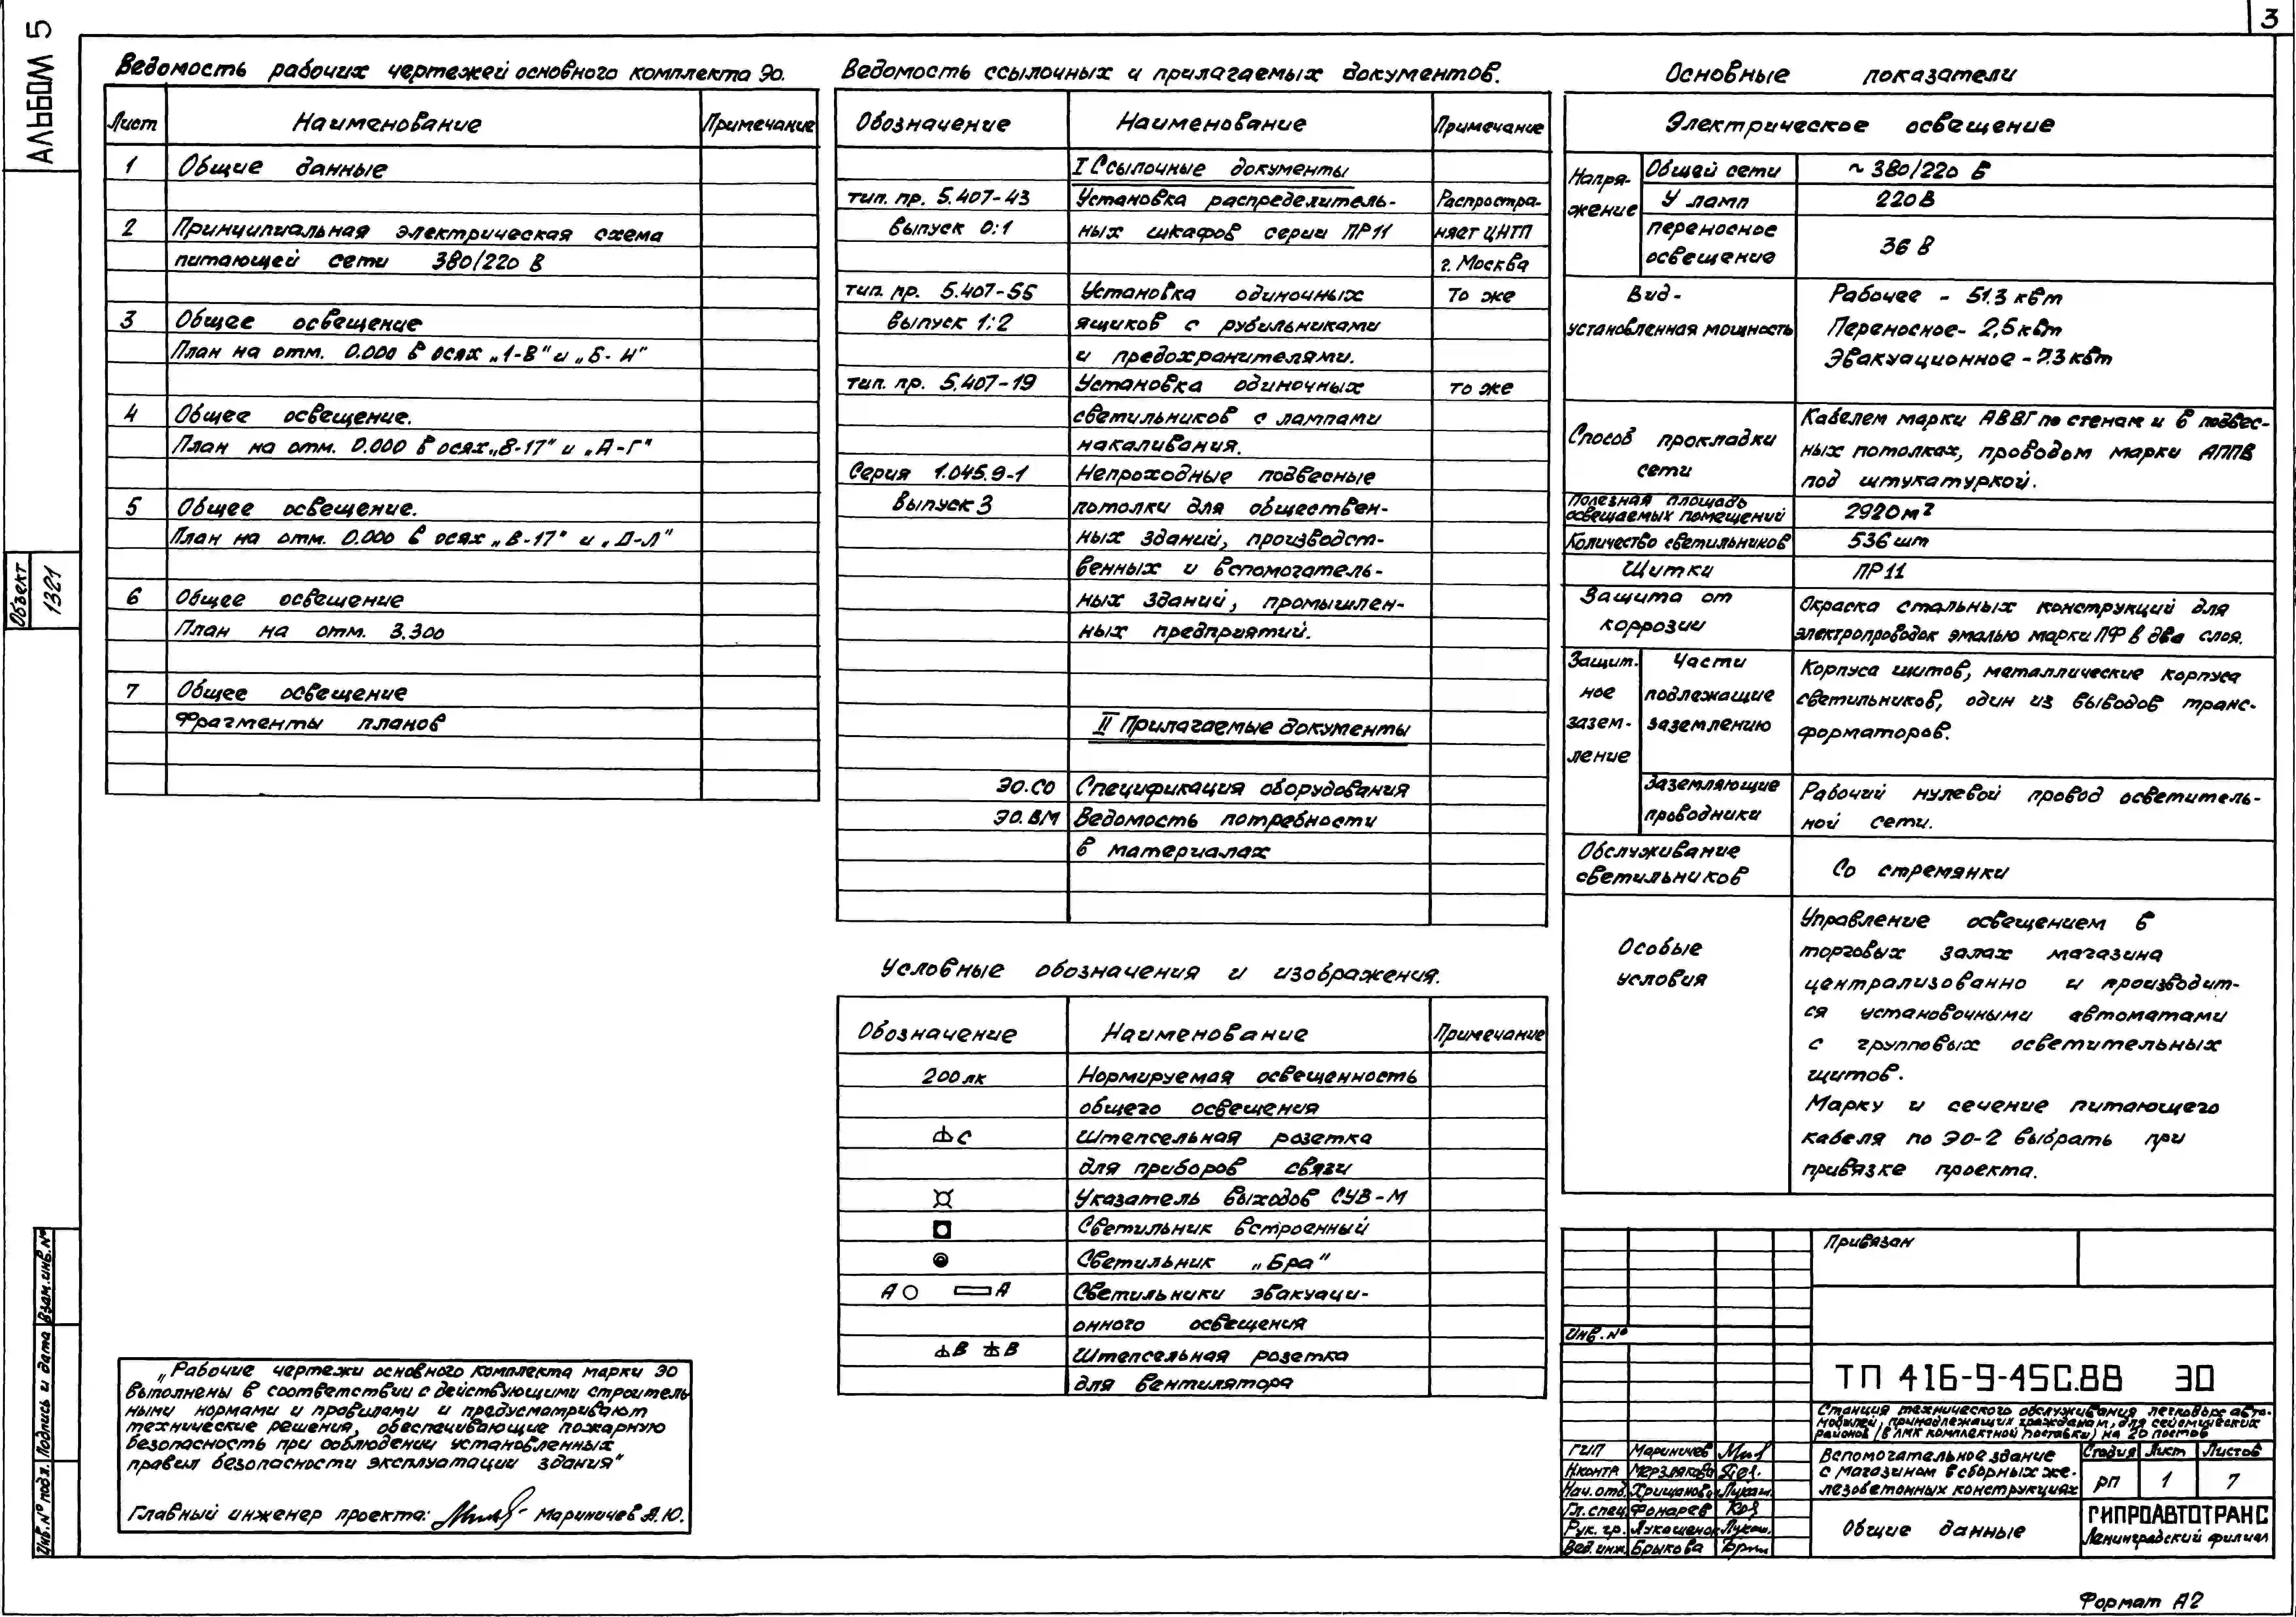 3
АЛЬБОМ 5
Ведомость рабочих чертежей основного комплекта ЭО.
Лист Наименование Примечание
1 Общие данные
2 Принципиальная электрическая схема
питающей сети 380/220 В
3 Общее освещение
План на отм. 0.000 в осях „1-8" и „Б-И"
4 Общее освещение.
План на отм. 0.000 в осях „8-17" и „А-Г"
5 Общее освещение.
План на отм. 0.000 в осях „8-17" и „Д-Л"
6 Общее освещение
План на отм. 3.300
7 Общее освещение
Фрагменты планов
Объект
1321
Взам.инв.№
Подпись и дата
Инв.№ подл.
„Рабочие чертежи основного комплекта марки ЭО
выполнены в соответствии с действующими строитель
ными нормами и правилами и предусматривают
технические решения, обеспечивающие пожарную
безопасность при соблюдении установленных
правил безопасности эксплуатации здания"
Главный инженер проекта: Мариничев А.Ю.
Ведомость ссылочных и прилагаемых документов.
Обозначение Наименование Примечание
I Ссылочные документы
тип. пр. 5.407-43 Установка распределитель- Распростра-
выпуск 0:1 ных шкафов серии ПР11 няет ЦНТП
г. Москва
тип. пр. 5.407-55 Установка одиночных То же
выпуск 1:2 ящиков с рубильниками
и предохранителями.
тип. пр. 5.407-19 Установка одиночных то же
светильников с лампами
накаливания.
Серия 1.045.9-1 Непроходные подвесные
выпуск 3 потолки для обществен-
ных зданий, производст-
венных и вспомогатель-
ных зданий, промышлен-
ных предприятий.
II Прилагаемые документы
ЭО.СО Спецификация оборудования
ЭО.ВМ Ведомость потребности
в материалах
Условные обозначения и изображения.
Обозначение Наименование Примечание
200 лк Нормируемая освещенность
общего освещения
С Штепсельная розетка
для приборов связи
Указатель выходов СУВ-М
Светильник встроенный
Светильник „Бра"
А А Светильники эвакуаци-
онного освещения
В В Штепсельная розетка
для вентилятора
Основные показатели
Электрическое освещение
Напря-
жение
Общей сети ~ 380/220 В
У ламп 220 В
переносное
освещение 36 В
Вид-
установленная мощность
Рабочее - 51.3 квт
Переносное - 2,5 квт
Эвакуационное - 7.3 квт
Способ прокладки
сети
Кабелем марки АВВГ по стенам и в подвес-
ных потолках, проводом марки АППВ
под штукатуркой.
Полезная площадь
освещаемых помещений 2920 м2
Количество светильников 536 шт
Щитки ПР11
Защита от
коррозии
Окраска стальных конструкций для
электропроводок эмалью марки ПФ в два слоя.
Защит-
ное
зазем-
ление
Части
подлежащие
заземлению
Корпуса щитов, металлические корпуса
светильников, один из выводов транс-
форматоров.
Заземляющие
проводники
Рабочий нулевой провод осветитель-
ной сети.
Обслуживание
светильников
Со стремянки
Особые
условия
Управление освещением в
торговых залах магазина
централизованно и производит-
ся установочными автоматами
с групповых осветительных
щитов.
Марку и сечение питающего
кабеля по ЭО-2 выбрать при
привязке проекта.
Привязан
Инв.№
ТП 416-9-45С.88 ЭО
Станция технического обслуживания легковых авто-
мобилей, принадлежащих гражданам, для сейсмических
районов (в ЛМК комплектной поставки) на 20 постов
ГИП Мариничев
Н.контр Мерзлякова
Нач.отд. Хрищанова
Гл.спец. Фонарев
Рук. гр. Лукошенок
Вед.инж. Брыкова
Вспомогательное здание
с магазином в сборных же-
лезобетонных конструкциях
Стадия Лист Листов
РП 1 7
Общие данные
ГИПРОАВТОТРАНС
Ленинградский филиал
Формат А2